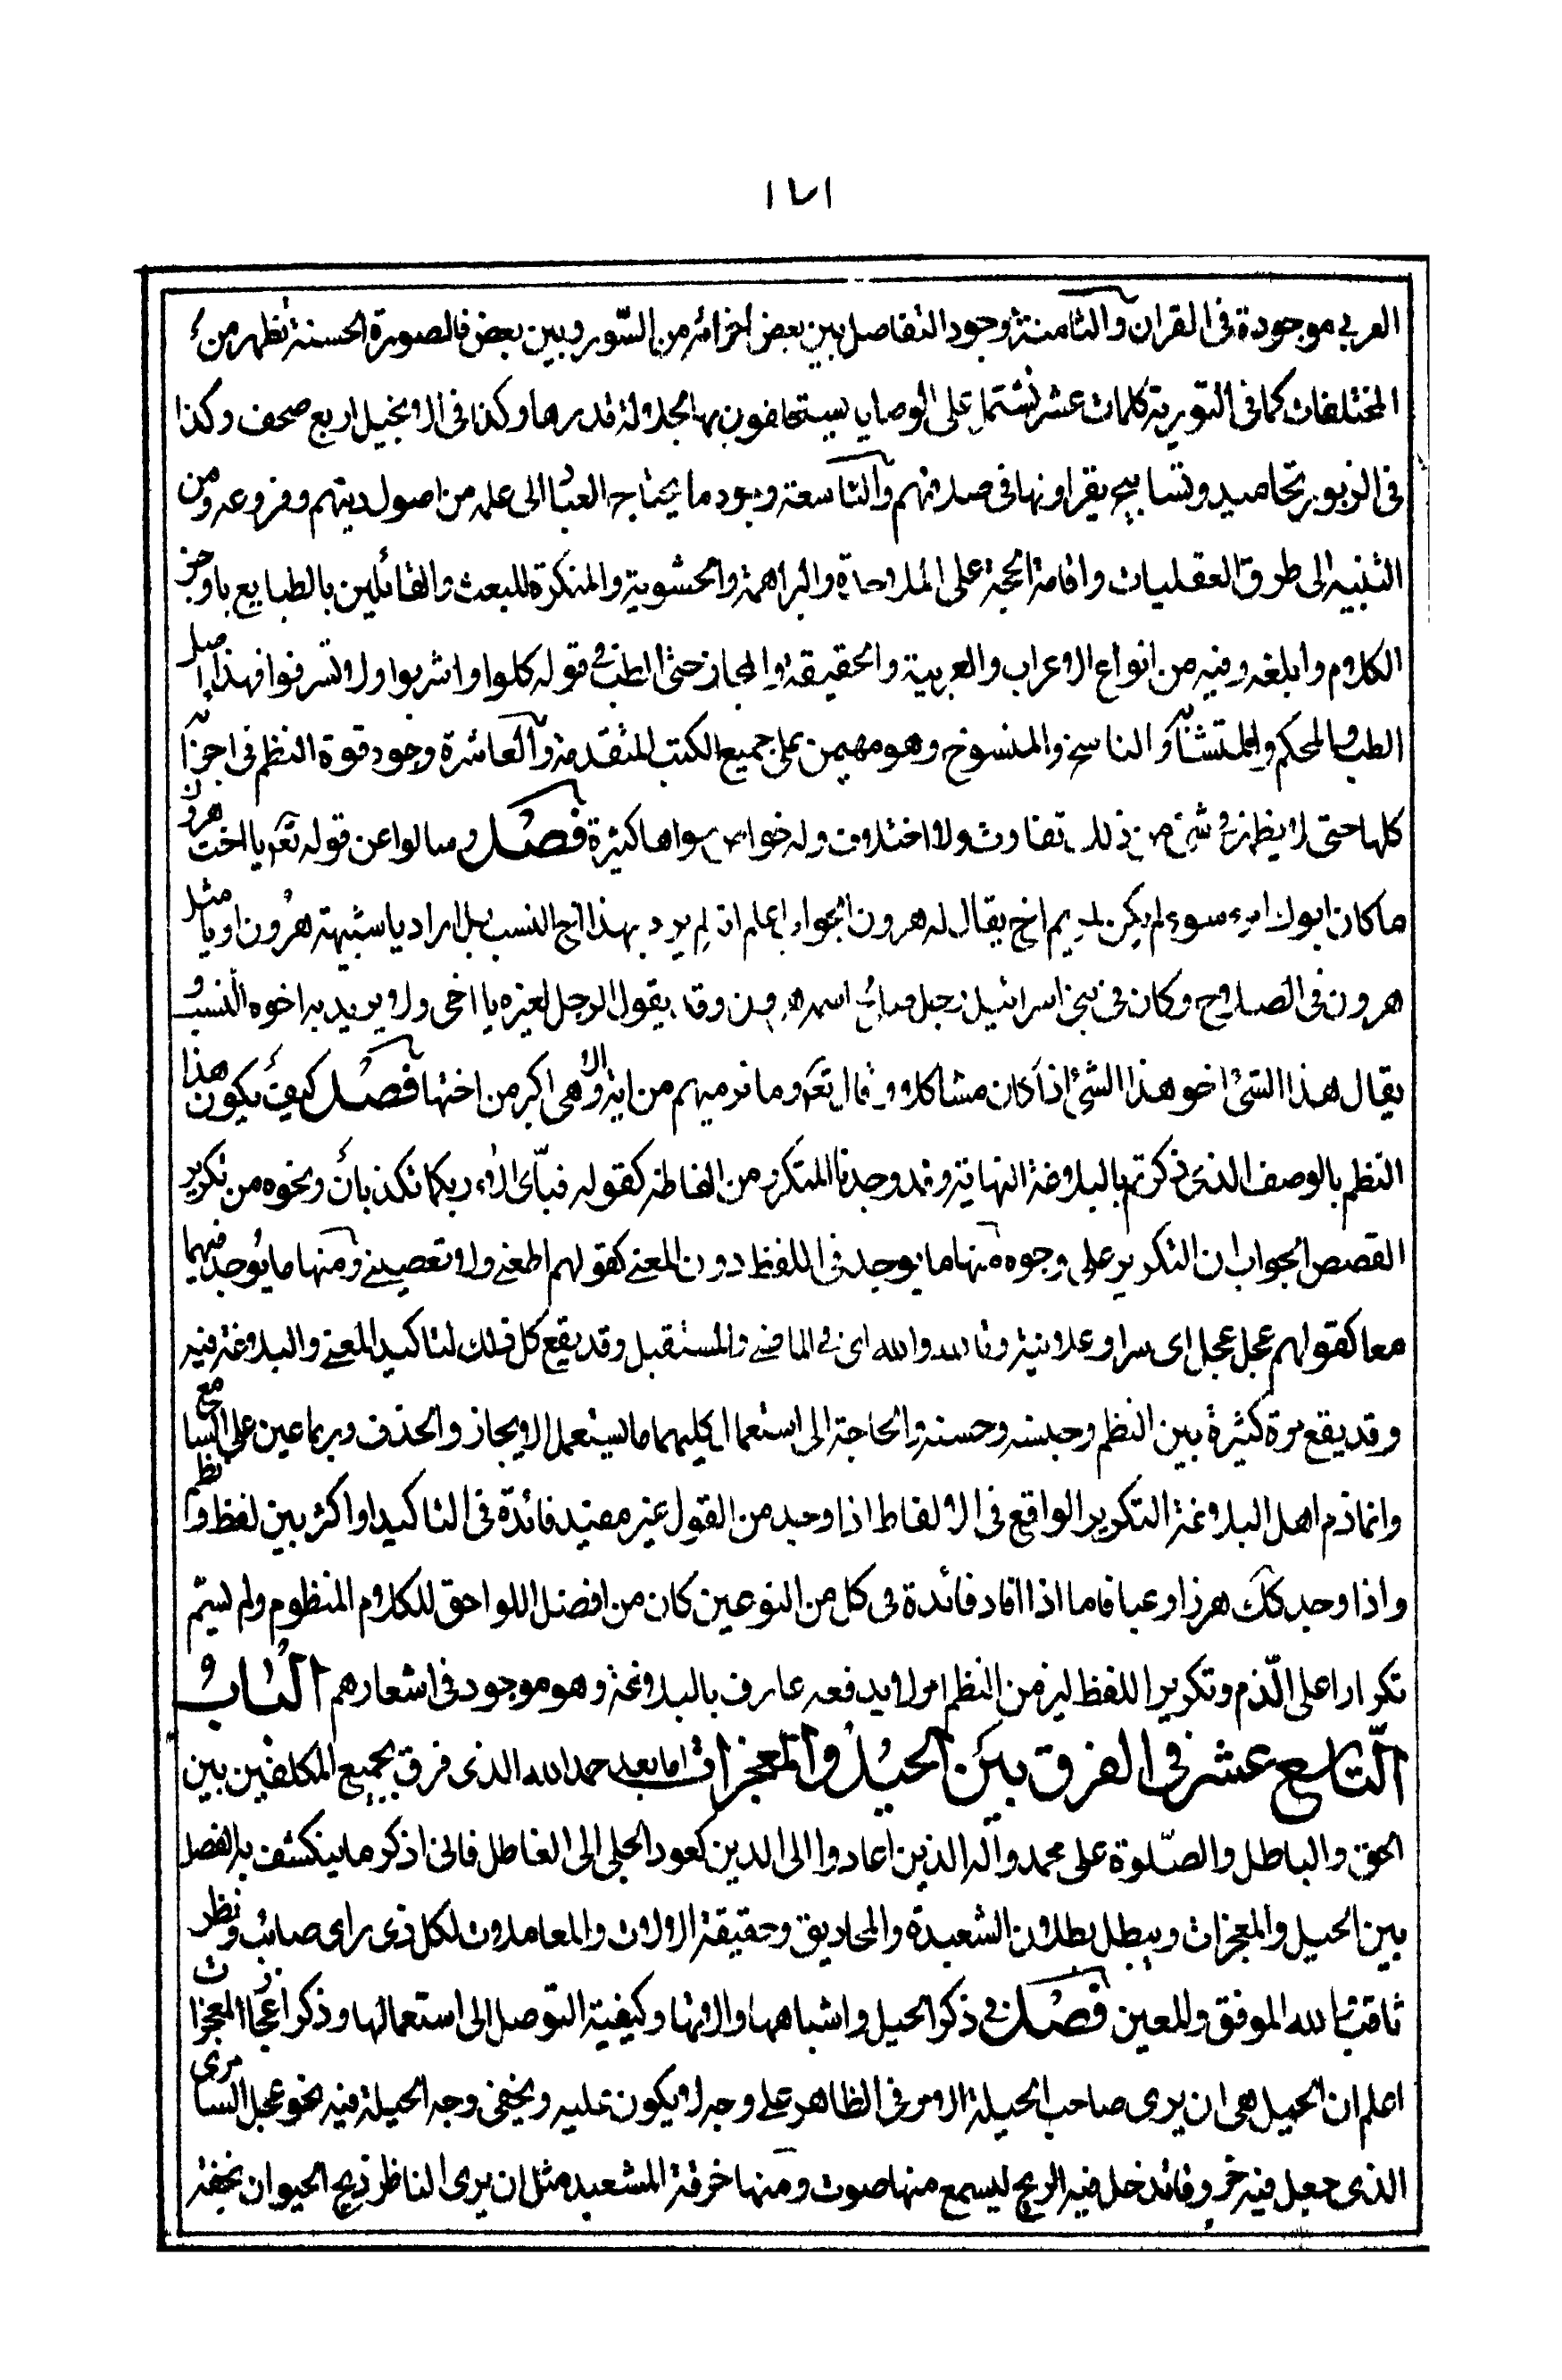 ١٧١
العربي موجودة في القران والثامنة وجود التفاصل بين بعض اجزائه من السّور وبين بعض فالصورة الحسنة تظهر من
المختلفات كما في التورية كلمات عشر تشتمل على الوصايا يستحلفون بها لجلالة قدرها وكذا في الانجيل اربع صحف وكذا
في الزبور تحاميد وتسابيح يقراونها في صلاتهم والتاسعة وجود ما يحتاج العباد الى علمه من اصول دينهم وفروعه ومن
التنبيه الى طرق العقليات واقامة الحجة على الملاحدة والبراهمة والحشوية والمنكرة للبعث والقائلين بالطبايع باوجز
الكلام وابلغه وفيه من انواع الاعراب والعربية والحقيقة والمجاز حتى الطب في قوله كلوا واشربوا ولا تسرفوا فهذا اصل
الطب والمحكم والمتشابه والناسخ والمنسوخ وهو مهيمن على جميع الكتب المتقدمة والعاشرة وجود قوة النظم في اجزائه
كلها حتى لا يظهر في شئ من ذلك تفاوت ولا اختلاف وله خواص سواها كثيرة فصل وسالوا عن قوله تعم يا اخت هرون
ما كان ابوك امرء سوء لم يكن لمريم اخ يقال له هرون الجواب اعلم انه لم يرد بهذا اخ النسب بل اراد يا شبيهة هرون او يا مثل
هرون في الصلاح وكان في بني اسرائيل رجل صالح اسمه هرون وقد يقول الرجل لغيره يا اخي ولا يريد به اخوه النسب و
يقال هذا الشئ اخو هذا الشئ اذا كان مشاكلا وقال تعم وما نريهم من اية الا وهي اكبر من اختها فصل كيف يكون هذا
النظم بالوصف الذي ذكرتم بالبلاغة النهاية وقد وجدنا المتكرر من الفاظه كقوله فباّى الاء ربكما تكذبان ونحوه من تكرير
القصص الجواب ان التكرير على وجوه منها ما يوجد في اللفظ دون المعنى كقولهم اطعني ولا تعصيني ومنها ما يوجد فيهما
معا كقولهم عجل عجل اى سرا وعلانية وتالله والله اى في الماضي والمستقبل وقد يقع كل ذلك لتاكيد المعنى والبلاغة فيه
وقد يقع مرة كثيرة بين النظم وحبسه وحسنه والحاجة الى استعمال كليهما ما يستعمل الايجاز والحذف وربما عين على السامع
وانما ذم اهل البلاغة التكرير الواقع في الالفاظ اذا وجد من القول غير مفيد فائدة في التاكيد او اكثر بين لفظ ونظم
واذا وجد كك هرزا وعبا فاما اذا افاد فائدة في كل من النوعين كان من افضل اللواحق للكلام المنظوم ولم يسّم
تكرارا على الذّم وتكرير اللفظ ليز من النظم امر لا يدفعه عارف بالبلاغة وهو موجود في اشعارهم الباب
التّاسع عشر في الفرق بين الحيل والمعجزات اما بعد حمد الله الذي فرق لجميع المكلفين بين
الحق والباطل والصّلوة على محمد واله الذين اعادوا الى الدين كعود الحلى الى العاطل فاني اذكر ما ينكشف به الفصل
بين الحيل والمعجزات ويبطل بطلان الشعبدة والمخاريق وحقيقة الالات والمعاملات لكل ذي راى صائب ونظر
ثاقب الله الموفق والمعين فصل في ذكر الحيل واشباهها والاتها وكيفية التوصل الى استعمالها وذكر اعجاز المعجزات
اعلم ان الحيل هي ان يرى صاحب الحيلة الامر في الظاهر على وجه لا يكون عليه ويخفي وجه الحيلة فيه نحو عجل السامرى
الذي جعل فيه خروقا تدخل فيه الريح ليسمع منها صوت ومنها خرقة المشعبد مثل ان يرى الناظر ذبح الحيوان بخفة